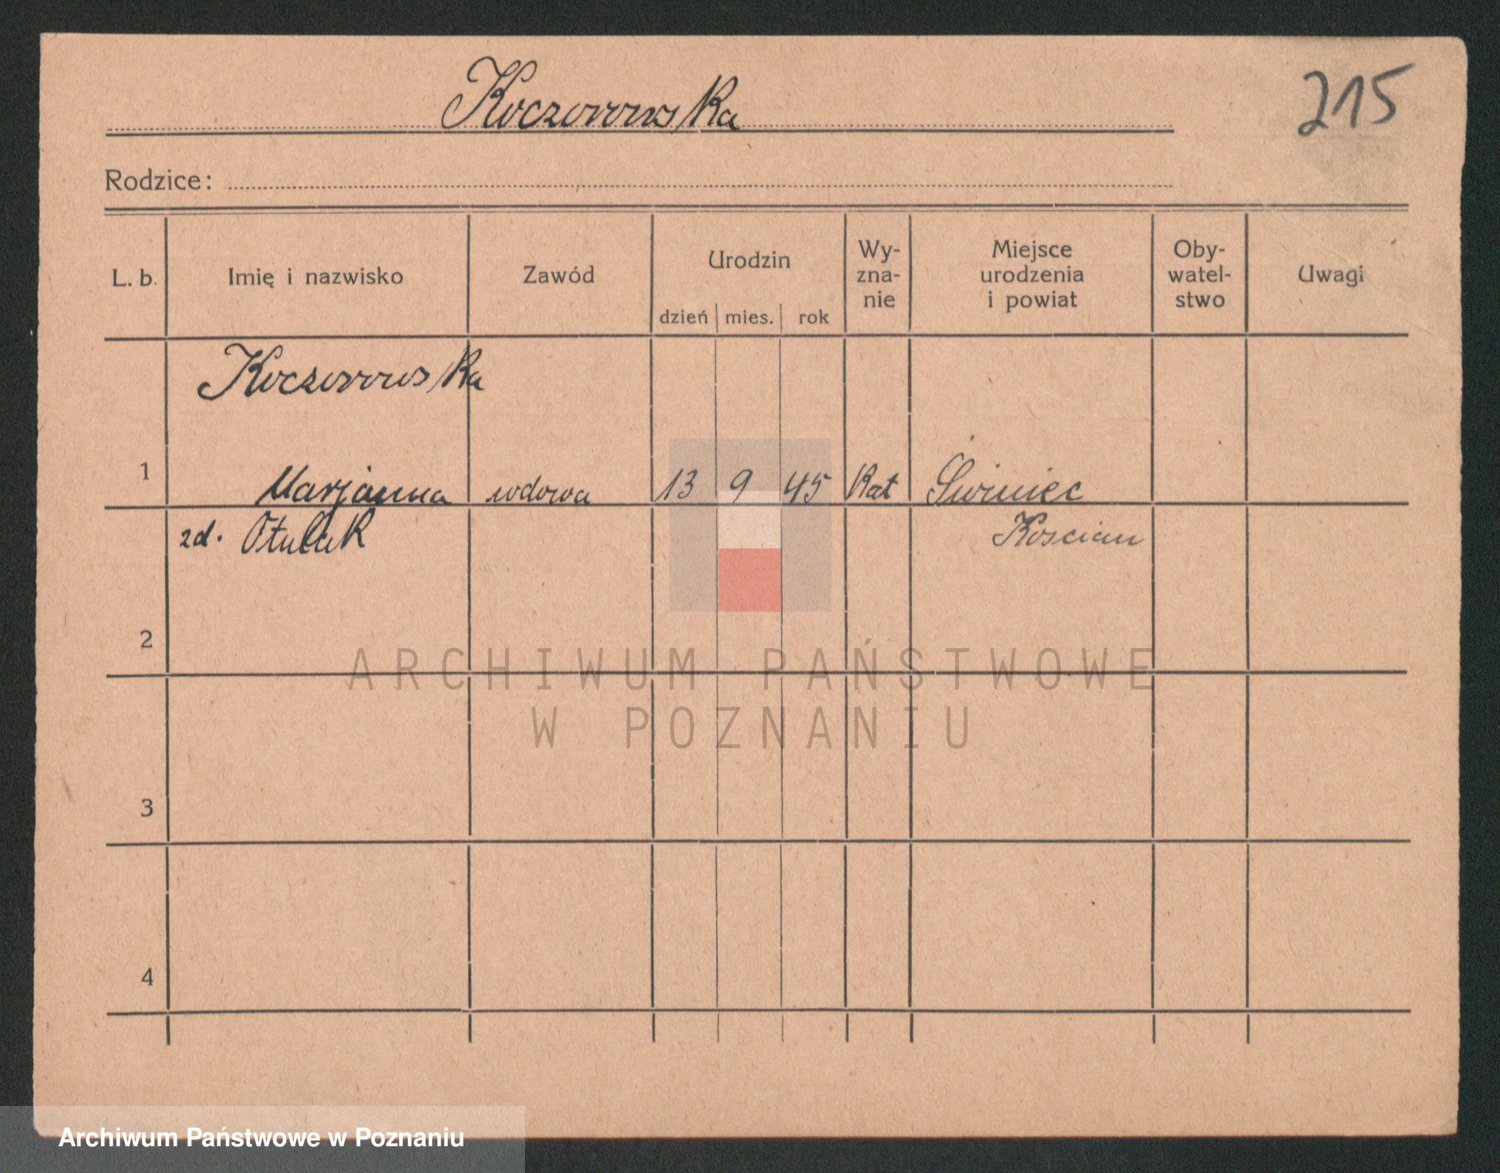 Koczorowska
215
Rodzice:
L. b. Imię i nazwisko Zawód Urodzin dzień mies. rok Wy-zna-nie Miejsce urodzenia i powiat Oby-watel-stwo Uwagi
Koczorowska
1 Marjanna wdowa 13 9 45 Kat Śiwiniec
zd. Otulak Koscian
2
ARCHIWUM PAŃSTWOWE
W POZNANIU
3
4
Archiwum Państwowe w Poznaniu